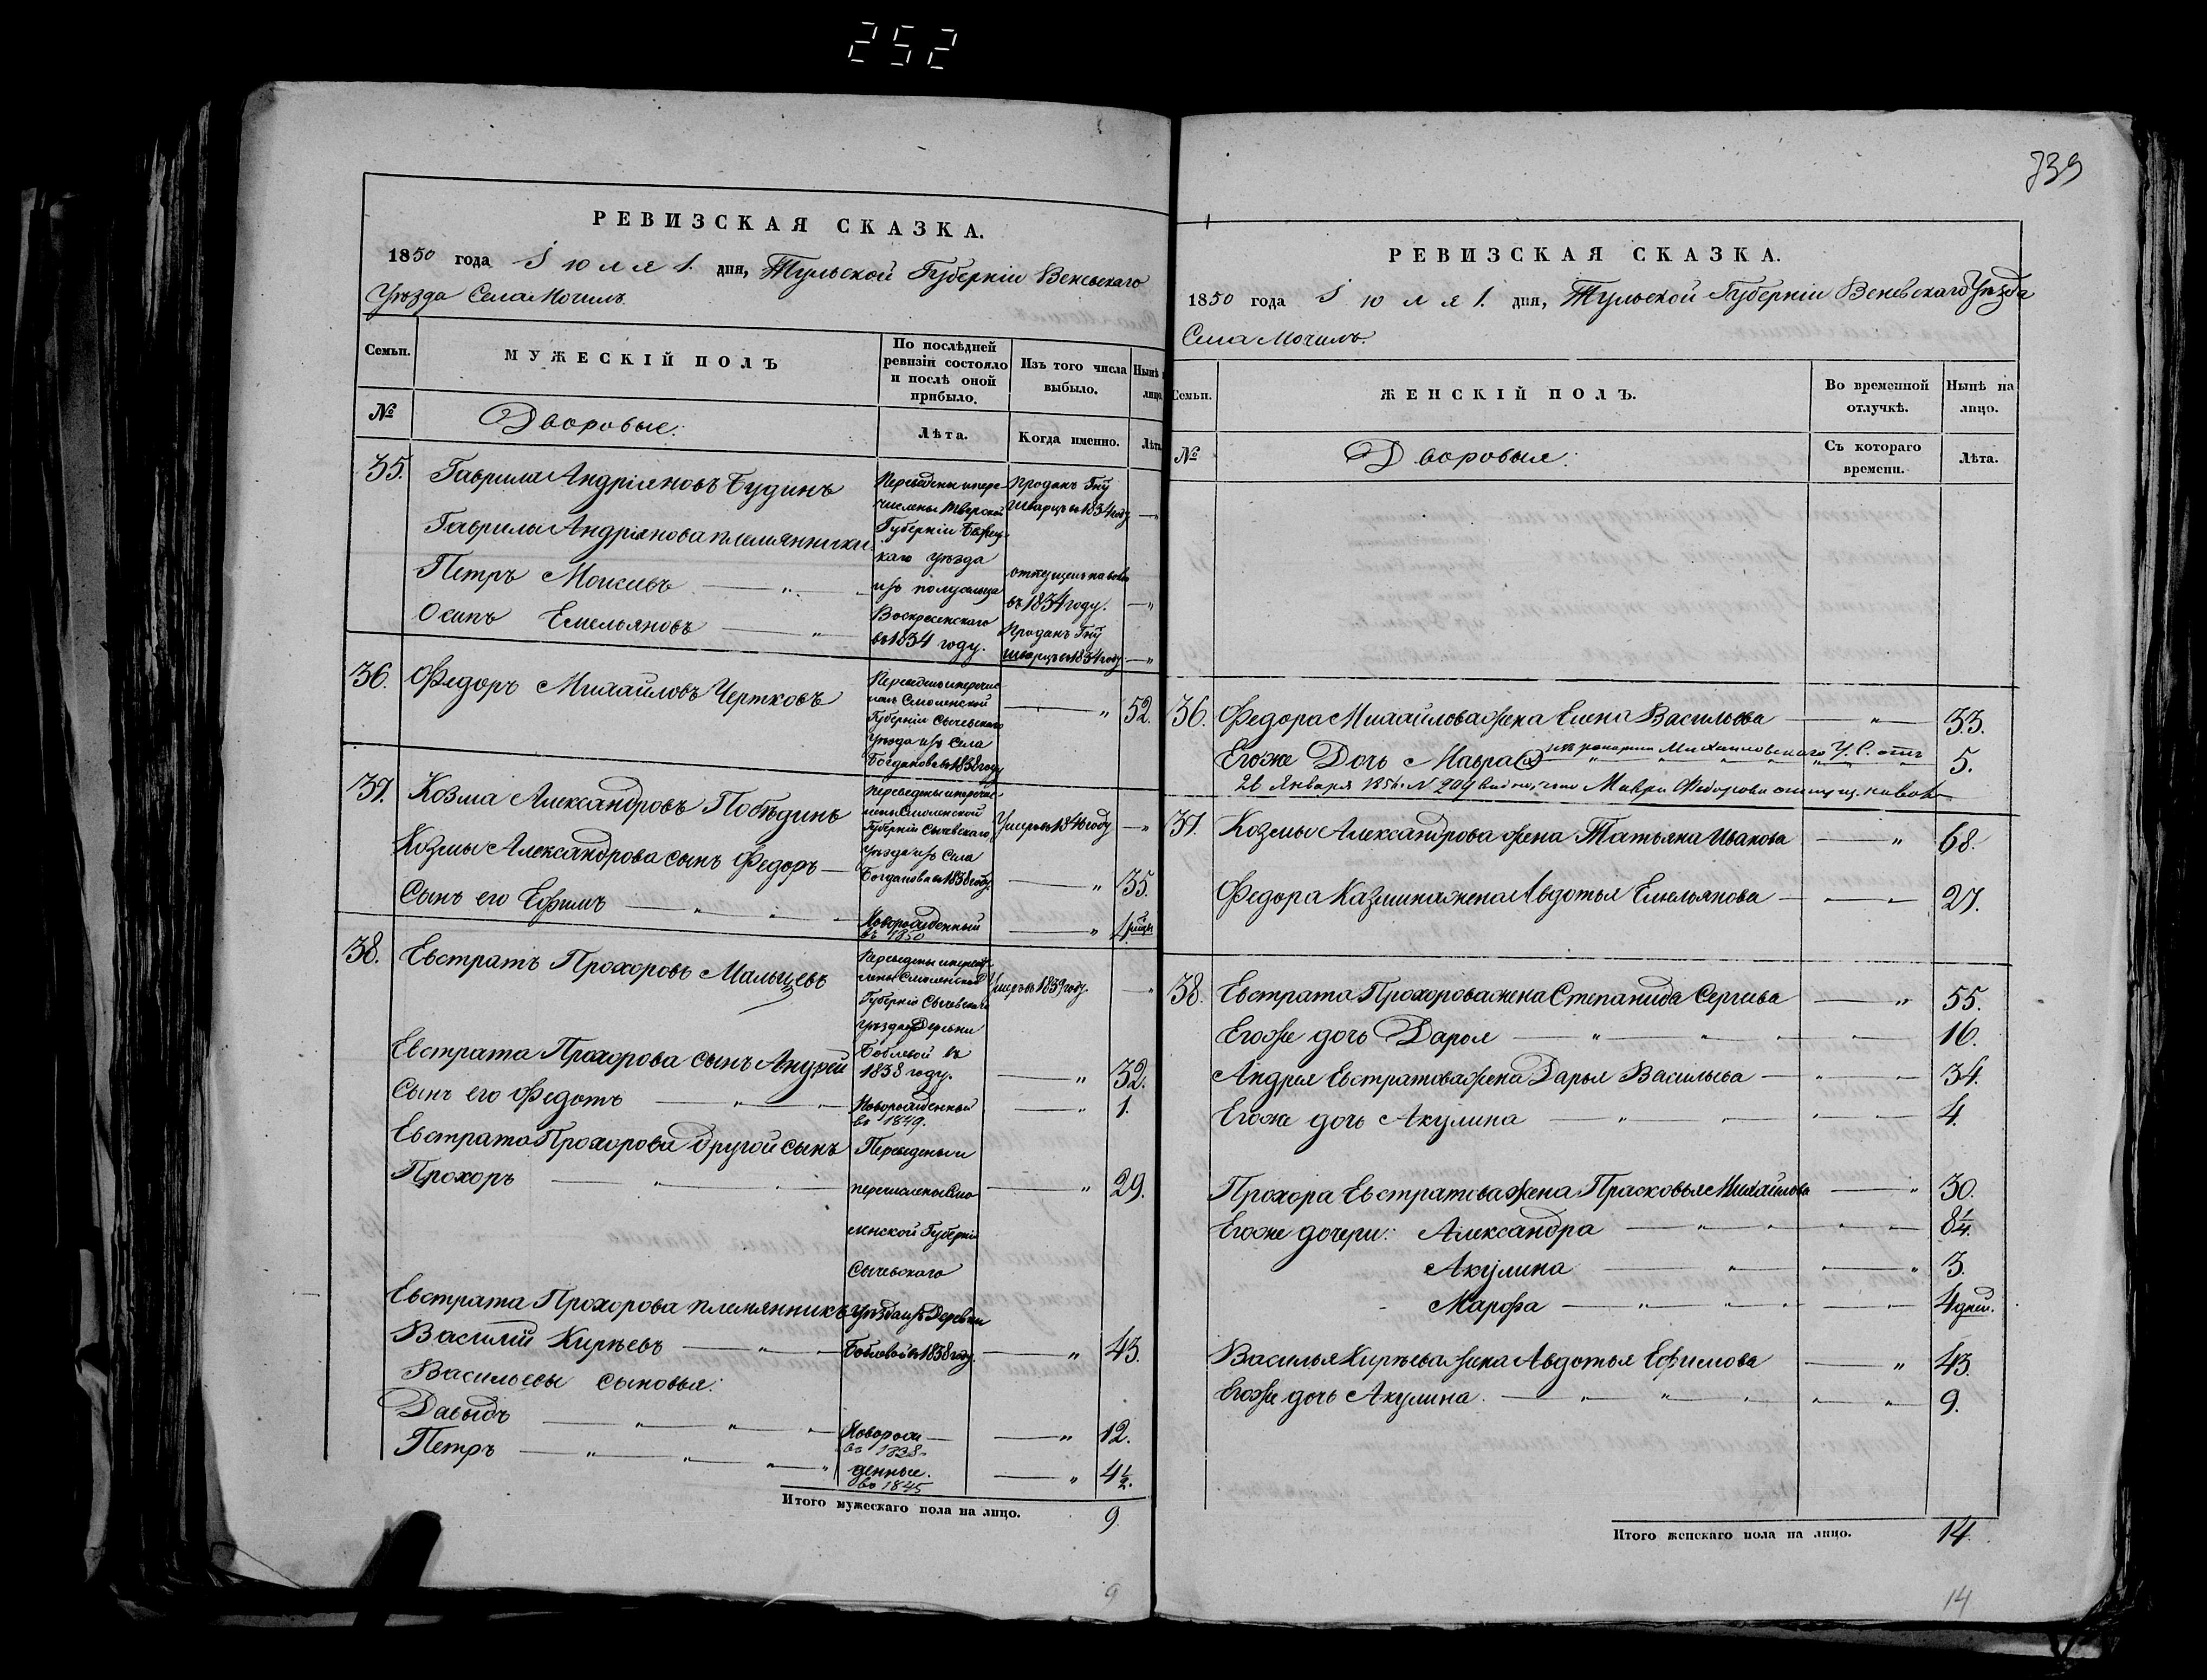 252
РЕВИЗСКАЯ СКАЗКА.
1850 года Іюля 1. дня, Тульской Губерніи Веневскаго
Уѣзда Села Мочилъ.
Семьи.
МУЖЕСКІЙ ПОЛЪ
По послѣдней
ревизіи состояло
и послѣ оной
прибыло.
Изъ того числа
выбыло.
Нынѣ
лицо.
№
Дворовые:
Лѣта.
Когда именно.
Лѣта
35. Гаврила Андріяновъ Будинъ
Гаврилы Андріянова племянники:
Петръ Моисеевъ — „ —
Осипъ Емельяновъ — „
Переведены и пере-
числены Тверской
Губерніи Бѣжец-
каго уѣзда
изъ полусельца
Воскресенскаго
въ 1834 году.
Проданъ Гну
Шварцъ въ 1834 году — „
отпущенъ на волю
въ 1834 году. — „
Проданъ Гну
Шварцъ въ 1834 году — „
36. Федоръ Михайловъ Чертковъ
Переведенъ и перечис
ленъ Смоленской
Губерніи Сычевскаго
Уѣзда изъ Села
Богданова въ 1838 году
— „ 52.
37. Козма Александровъ Побѣдинъ
Козмы Александрова сынъ Федоръ —
Сынъ его Ефимъ — „ „ —
Переведены и перечис
лены Смоленской
Губерніи Сычевскаго
Уѣзда изъ Села
Богданова въ 1838 году.
Умеръ въ 1846 году — „
— „ 35.
Новорожденный
въ 1850
— „
38. Евстратъ Прохоровъ Мальцевъ
Переведены и перечис
лены Смоленской
Губерніи Сычевскаго
Уѣзда изъ Деревни
Бобловой въ
1838 году.
Умеръ въ 1839 году. — „
Евстрата Прохорова сынъ Андрей — „ 32.
Сынъ его Федотъ — „ — Новорожденный — „ 1.
въ 1849.
Евстрата Прохорова другой сынъ
Прохоръ — „ — — „ 29.
Переведены и
перечислены Смо
ленской Губерніи
Сычевскаго
Уѣзда изъ Деревни
Бобловой въ 1838 году.
Евстрата Прохорова племянникъ
Василій Кирѣевъ — „ — — „ 43.
Васильевы сыновья:
Давыдъ — „ „ — Новорож — — „ 12.
въ 1838.
Петръ — „ „ „ денные. — „ 4½.
въ 1845
Итого мужескаго пола на лицо. 9.
9
739
РЕВИЗСКАЯ СКАЗКА.
1850 года Іюля 1. дня, Тульской Губерніи Веневскаго Уѣзда
Села Мочилъ.
Семьи.
ЖЕНСКІЙ ПОЛЪ.
Во временной
отлучкѣ.
Нынѣ на
лицо.
№
Дворовыя:
Съ котораго
времени.
Лѣта.
36. Федора Михайлова жена Елена Васильева — „ — 33.
Егоже Дочь Мавра изъ рапорта Михайловскаго У. С. отъ 5.
26 Января 1856. N 209 видно, что Мавра Федорова отпущ. на волю
37. Козмы Александрова жена Татьяна Иванова — „ 68.
Федора Казмина жена Авдотья Емельянова — „ — 27.
38. Евстрата Прохорова жена Степанида Сергѣева — „ 55.
Егоже дочь Дарья — „ „ „ — 16.
Андрея Евстратова жена Дарья Васильева — „ — 34.
Егоже дочь Акулина — „ „ „ — 4.
Прохора Евстратова жена Прасковья Михайлова — „ 30.
Егоже дочери: Александра — „ „ „ — 8¼.
Акулина — „ — „ 3.
Марфа — „ „ „ — 4 дней.
Василья Кирѣева жена Авдотья Ефимова — „ 43.
Егоже дочь Акулина. — „ „ „ — 9.
Итого женскаго пола на лицо. 14.
14